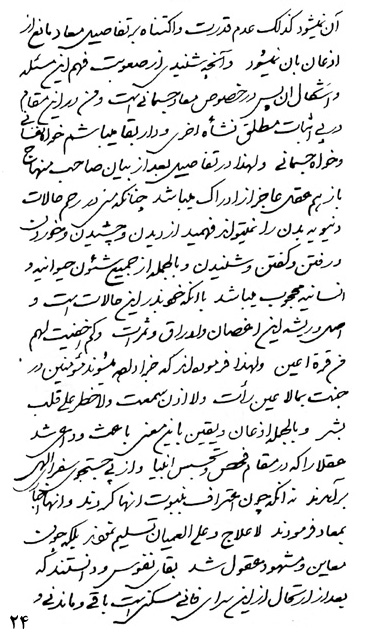 آن نمیشود کذلک عدم قدرت و اکتناه بر تفاصیل معاد مانع از
اذعان بان نمیشود و آنچه شنیدی از صعوبت فهم این مسئله
و اشکال آن پس در خصوص معاد جسمانی است و من در این مقام
در پی اثبات مطلق نشأه اخری و دار بقا میباشم خواه روحانی
و خواه جسمانی و لهذا در تفاصیل بعد از بیان صاحب منهاج
باز هم عقل عاجز از ادراک میباشد چنانکه جنین در رحم حالات
دنیویه بدن را نمیتواند فهمید از دیدن و چشیدن و خوردن
و رفتن و گفتن و شنیدن و بالجمله از جمیع شئون حیوانیه و
انسانیه محجوب میباشد با آنکه خود در این حالات است و
اصل و ریشه این اغصان و اوراق و ثمرات و کم اخفیت لهم
من قرة اعین و لهذا فرموده‌اند که جزا داده میشوند مؤمنین در
جنت بما لا عین رأت ولا اذن سمعت ولا خطر علی قلب
بشر و بالجمله اذعان و یقین باین معنی باعث و داعی شد
عقلا را که در مقام فحص و تجسس انبیا و از پی جستجوی سفرای الهی
برآمدند نه آنکه چون اعتراف بنبوت آنها کردند و آنها اخبار
بمعاد فرمودند لا علاج و علی العمیان تسلیم نمودند بلکه چون
معاین و مشهود عقول شد بقای نفوس و دانستند که
بعد از ارتحال از این سرای فانی مسکنی است باقی و ماندنی و
۲۴